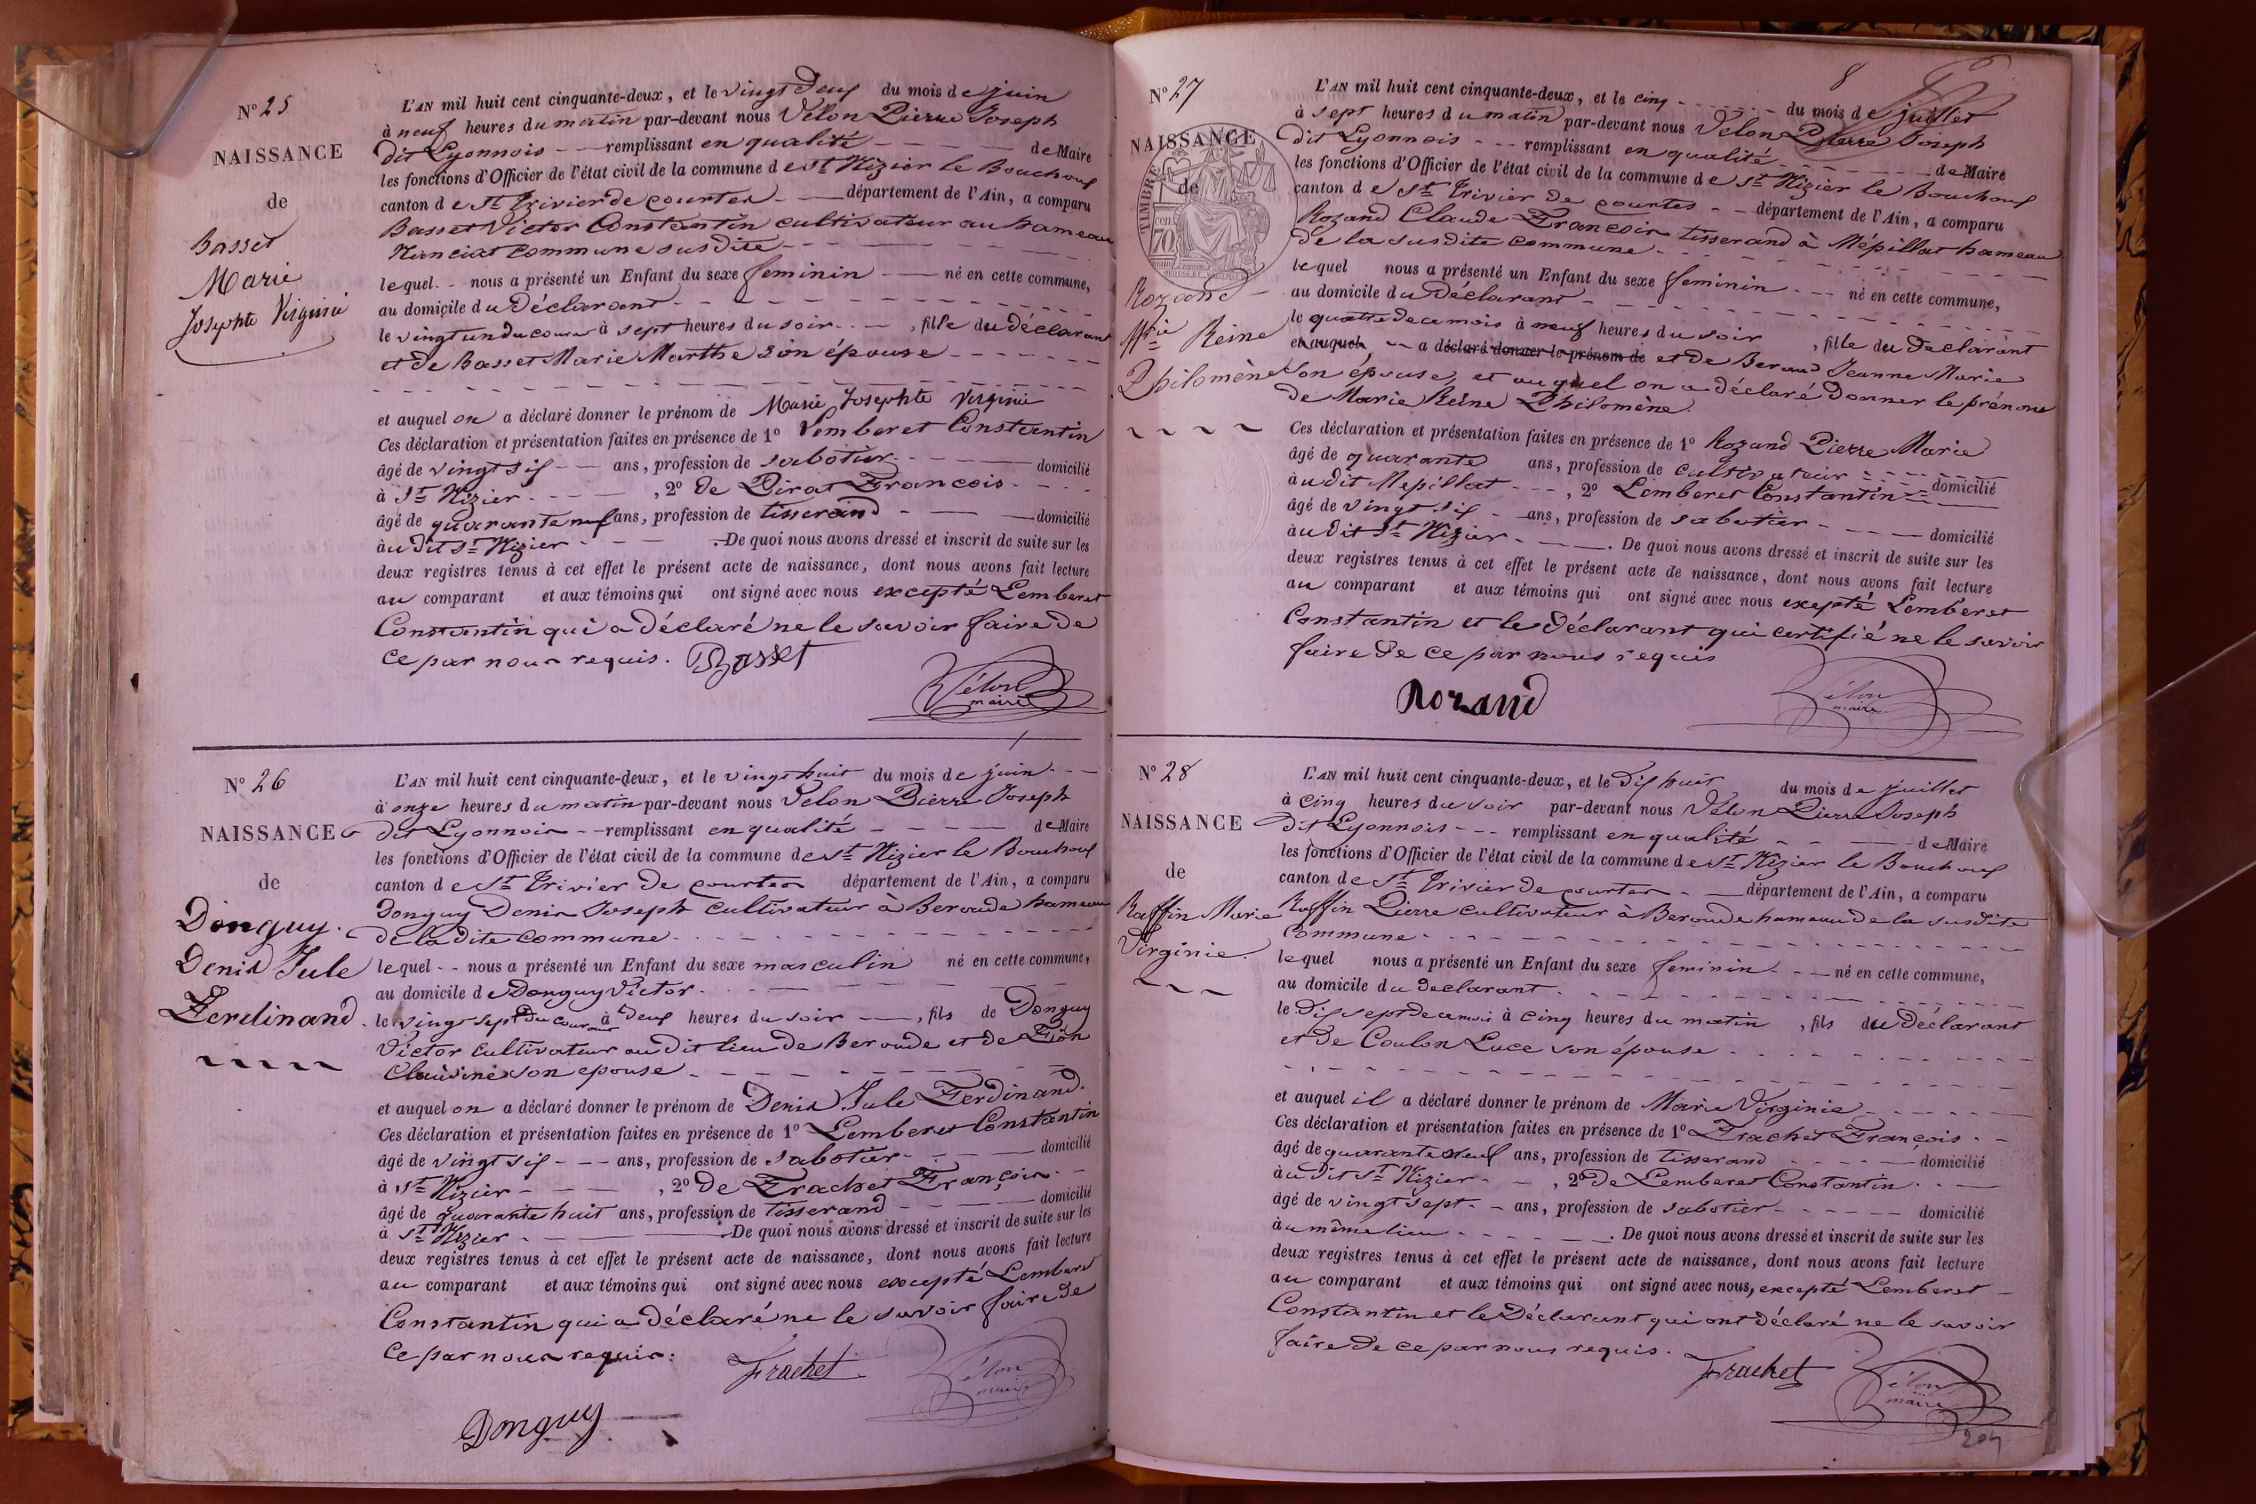 N° 25
NAISSANCE
de
Basset
Marie
Josephte Virginie
L'AN mil huit cent cinquante-deux, et le vingt deux du mois de juin
à neuf heures du matin par-devant nous Vélon Pierre Joseph
dit Lyonnois remplissant en qualité de Maire
les fonctions d'Officier de l'état civil de la commune de St Nizier le Bouchoux
canton de St Trivier de courtes département de l'Ain, a comparu
Basset Victor Constantin cultivateur au hameau
Nanciat commune susdite
lequel nous a présenté un Enfant du sexe feminin né en cette commune,
au domicile du Déclarant
le vingt un du courant à sept heures du soir, fille du déclarant
et de Basset Marie Marthe son épouse
et auquel on a déclaré donner le prénom de Marie Josephte Virginie
Ces déclaration et présentation faites en présence de 1° Lemberet Constantin
âgé de vingt six ans, profession de sabotier domicilié
à St Nizier, 2° de Pirat François
âgé de quarante neuf ans, profession de tisserand domicilié
au dit St Nizier. De quoi nous avons dressé et inscrit de suite sur les
deux registres tenus à cet effet le présent acte de naissance, dont nous avons fait lecture
au comparant et aux témoins qui ont signé avec nous excepté Lemberet
Constantin qui a déclaré ne le savoir faire de
ce par nous requis. Basset
Vélon
maire
N° 26
NAISSANCE
de
Donguy
Denis Jule
Ferdinand
L'AN mil huit cent cinquante-deux, et le vingt huit du mois de juin
à onze heures du matin par-devant nous Velon Pierre Joseph
dit Lyonnois remplissant en qualité de Maire
les fonctions d'Officier de l'état civil de la commune de St Nizier le Bouchoux
canton de St Trivier de courtes département de l'Ain, a comparu
Donguy Denis Joseph cultivateur à Beroude hameau
de la dite commune
lequel nous a présenté un Enfant du sexe masculin né en cette commune,
au domicile de Donguy Victor
le vingt sept du courant à deux heures du soir, fils de Donguy
Victor cultivateur au dit lieu de Beroude et de
Claudine son epouse
et auquel on a déclaré donner le prénom de Denis Jule Ferdinand.
Ces déclaration et présentation faites en présence de 1° Lemberet Constantin
âgé de vingt six ans, profession de sabotier domicilié
à St Nizier, 2° de Frachet François
âgé de quarante huit ans, profession de tisserand domicilié
à St Nizier. De quoi nous avons dressé et inscrit de suite sur les
deux registres tenus à cet effet le présent acte de naissance, dont nous avons fait lecture
au comparant et aux témoins qui ont signé avec nous excepté Lemberet
Constantin qui a déclaré ne le savoir faire de
ce par nous requis.
Frachet
Vélon
maire
Donguy
8
N° 27
NAISSANCE
de
TIMBRE
70
Rozand
Mie Reine
Philomène
L'AN mil huit cent cinquante-deux, et le cinq du mois de juillet
à sept heures du matin par-devant nous Velon Pierre Joseph
dit Lyonnois remplissant en qualité de Maire
les fonctions d'Officier de l'état civil de la commune de St Nizier le Bouchoux
canton de St Trivier de courtes département de l'Ain, a comparu
Rozand Claude François tisserand à Mépillat hameau
de la susdite commune
lequel nous a présenté un Enfant du sexe feminin né en cette commune,
au domicile du Déclarant
le quatre de ce mois à neuf heures du soir, fille du Déclarant
et auquel a déclaré donner le prénom de et de Beraud Jeanne Marie
son épouse, et auquel on a déclaré donner le prénom
de Marie Reine Philomène.
Ces déclaration et présentation faites en présence de 1° Rozand Pierre Marie
âgé de quarante ans, profession de cultivateur domicilié
au dit Mepillat, 2° Lemberet Constantin
âgé de vingt six ans, profession de sabotier domicilié
au dit St Nizier. De quoi nous avons dressé et inscrit de suite sur les
deux registres tenus à cet effet le présent acte de naissance, dont nous avons fait lecture
au comparant et aux témoins qui ont signé avec nous exepté Lemberet
Constantin et le déclarant qui certifié ne le savoir
faire de ce par nous requis
Rozand
Vélon
maire
N° 28
NAISSANCE
de
Raffin Marie
Virginie
L'AN mil huit cent cinquante-deux, et le dix huit du mois de juillet
à cinq heures du soir par-devant nous Vélon Pierre Joseph
dit Lyonnois remplissant en qualité de Maire
les fonctions d'Officier de l'état civil de la commune de St Nizier le Bouchoux
canton de St Trivier de courtes département de l'Ain, a comparu
Raffin Pierre cultivateur à Beroude hameau de la susdite
commune
lequel nous a présenté un Enfant du sexe feminin né en cette commune,
au domicile du Declarant
le dix sept de ce mois à cinq heures du matin, fils du Déclarant
et de Coulon Luce son épouse
et auquel il a déclaré donner le prénom de Marie Virginie
Ces déclaration et présentation faites en présence de 1° Frachet François
âgé de quarante neuf ans, profession de tisserand domicilié
au dit St Nizier, 2° de Lemberet Constantin
âgé de vingt sept ans, profession de sabotier domicilié
au même lieu. De quoi nous avons dressé et inscrit de suite sur les
deux registres tenus à cet effet le présent acte de naissance, dont nous avons fait lecture
au comparant et aux témoins qui ont signé avec nous, excepté Lemberet
Constantin et le Déclarant qui ont déclaré ne le savoir
faire de ce par nous requis.
Frachet
Vélon
maire
204